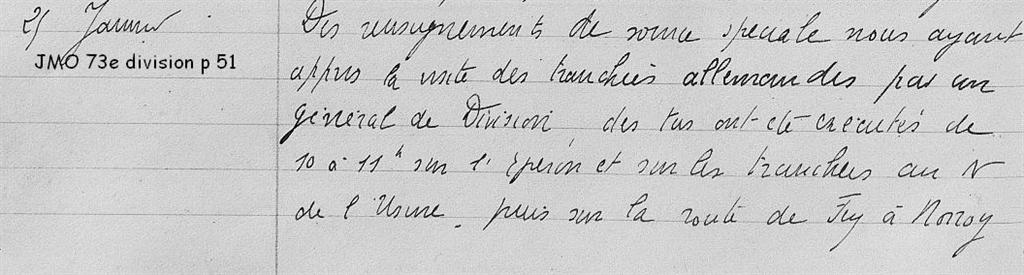 25 Janvier
JMO 73e division p 51
Des renseignements de source spéciale nous ayant
appris la visite des tranchées allemandes par un
général de Division des tirs ont été exécutés de
10 à 11h sur l'Eperon et sur les tranchées au N
de l'Usine, puis sur la route de Fey à Norroy